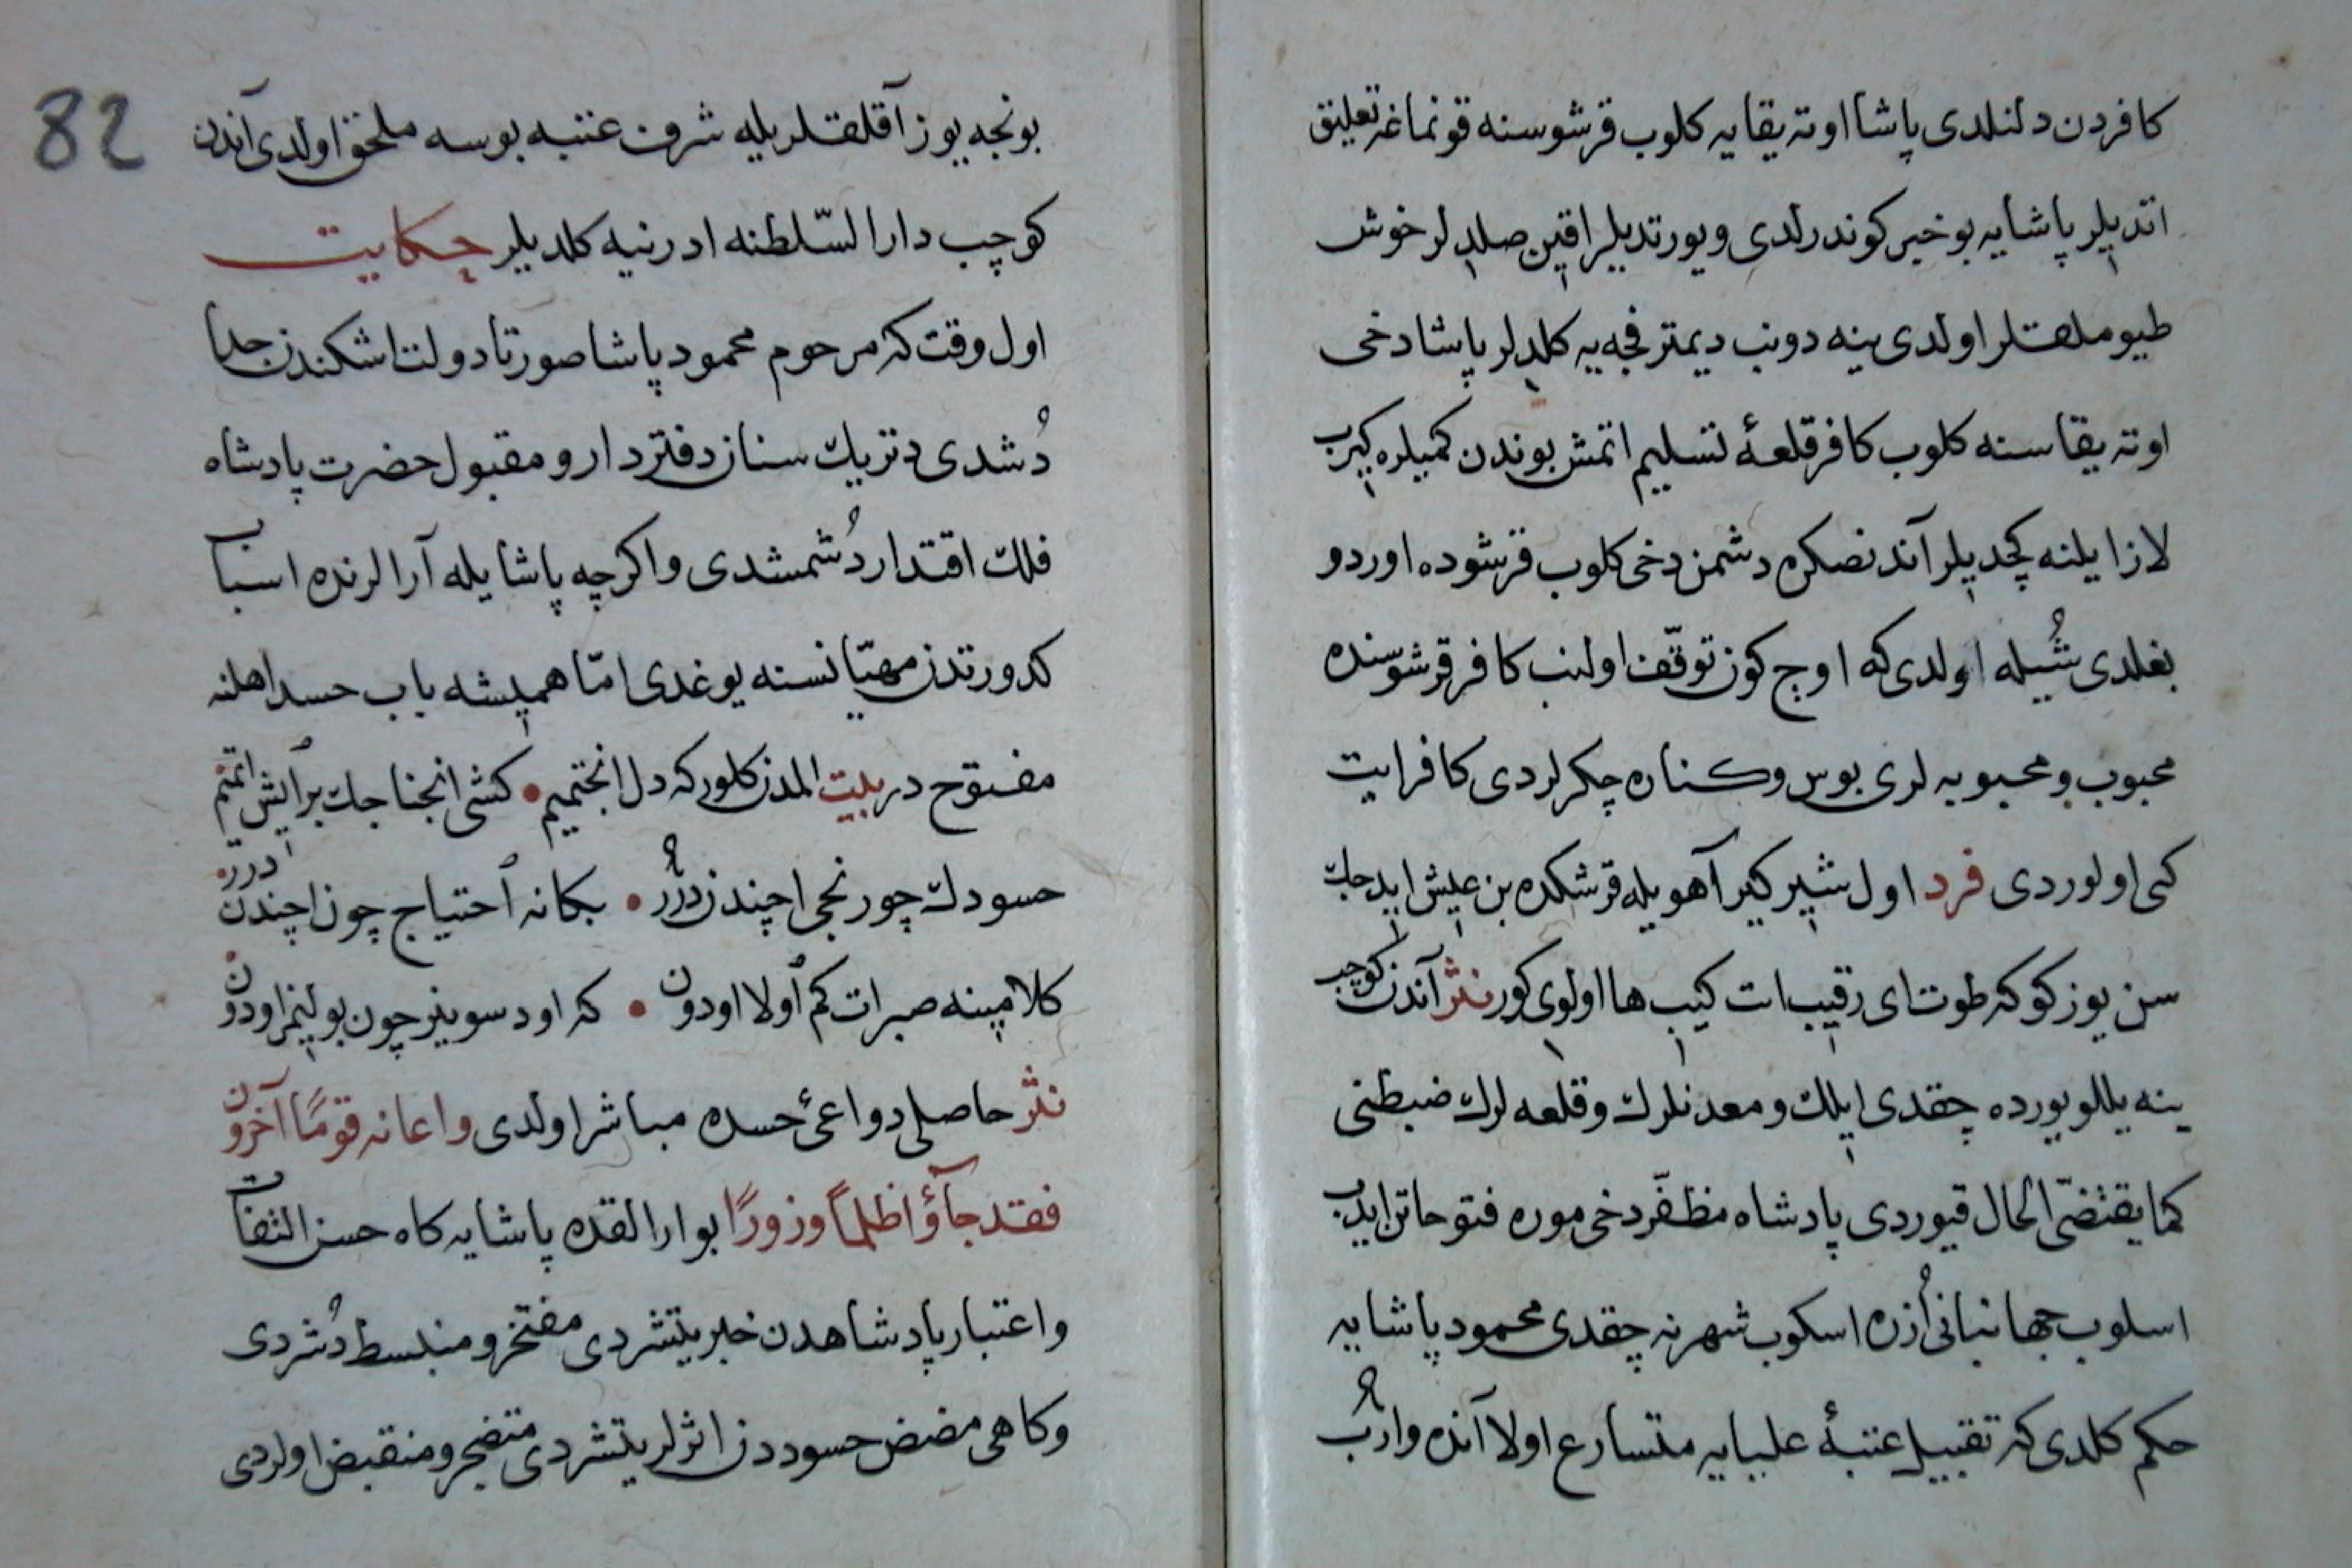 كافردن دلنلدى پاشا اوته يقايه كلوب قرشوسنه قونماغه تعليق
اتديلر پاشايه بو خبر كوندرلدى و يورتديلر اقين صلديلر خوش
طيوملقلر اولدى ينه دونب ديمترفجه يه كلديلر پاشا دخى
اوته يقاسنه كلوب كافر قلعهٔ تسليم اتمش بوندن كميلره كيرب
لازا يلنه كچديلر آندنصكره دشمن دخى كلوب قرشوده اوردو
بغلدى شُيله اولدى كه اوج كون توقّف اولنب كافر قرشوسنده
محبوب و محبوبه لرى بوس و كناره چكرلردى كافر ايت
كى اولوردى فرد اول شير كير آهويله قرشكده بن عيش ايدجك
سن يوز كوكه طوت اى رقيب ات كيب ها اولوى كور نثر آندن كوچب
ينه يللو يورده چقدى ايلك و معدنلرك و قلعه لرك ضبطنى
كما يقتضى الحال قيوردى پادشاه مظفّر دخى موره فتوحاتن ايدب
اسلوب جهانبانى اُزره اسكوب شهرنه چقدى محمود پاشايه
حكم كلدى كه تقبيل عتبهٔ عليايه متسارع اولا آنده وارُب
82
بونجه يوز آقلقلريله شرف عتبه بوسه ملحق اولدى آندن
كوچب دار السّلطنه ادرنيه كلديلر حكايت
اول وقت كه مرحوم محمود پاشا صورتا دولت اشكندن جدا
دُشدى دتريك سنان دفتردار و مقبول حضرت پادشاه
فلك اقتدار دُشمشدى واكرچه پاشايله آرالرنده اسباب
كدورتدن مهيّا نسنه يوغدى امّا هميشه باب حسد اهلنه
مفتوح در بيت المدن كلور كه دل انجتميم • كشى انجناجك بر ايش اتميم
حسودك چو رنجى اچندن دُرر • بكا نه احتياج چون اچندن دُرر
كلامينه صبر ات كم اولا اودون • كه اود سوينر چون بولنمز اودون
نثر حاصلى دواعئ حسده مباشر اولدى واعانه قومًا آخرون
فقد جآؤا ظلمًا وزورًا بو ارالقده پاشايه كاه حسن التفات
و اعتبار پادشاهدن خبر يتشردى مفتخر و منبسط دُشردى
وكاهى مضض حسوددن اثرلر يتشردى متضجر و منقبض اولردى